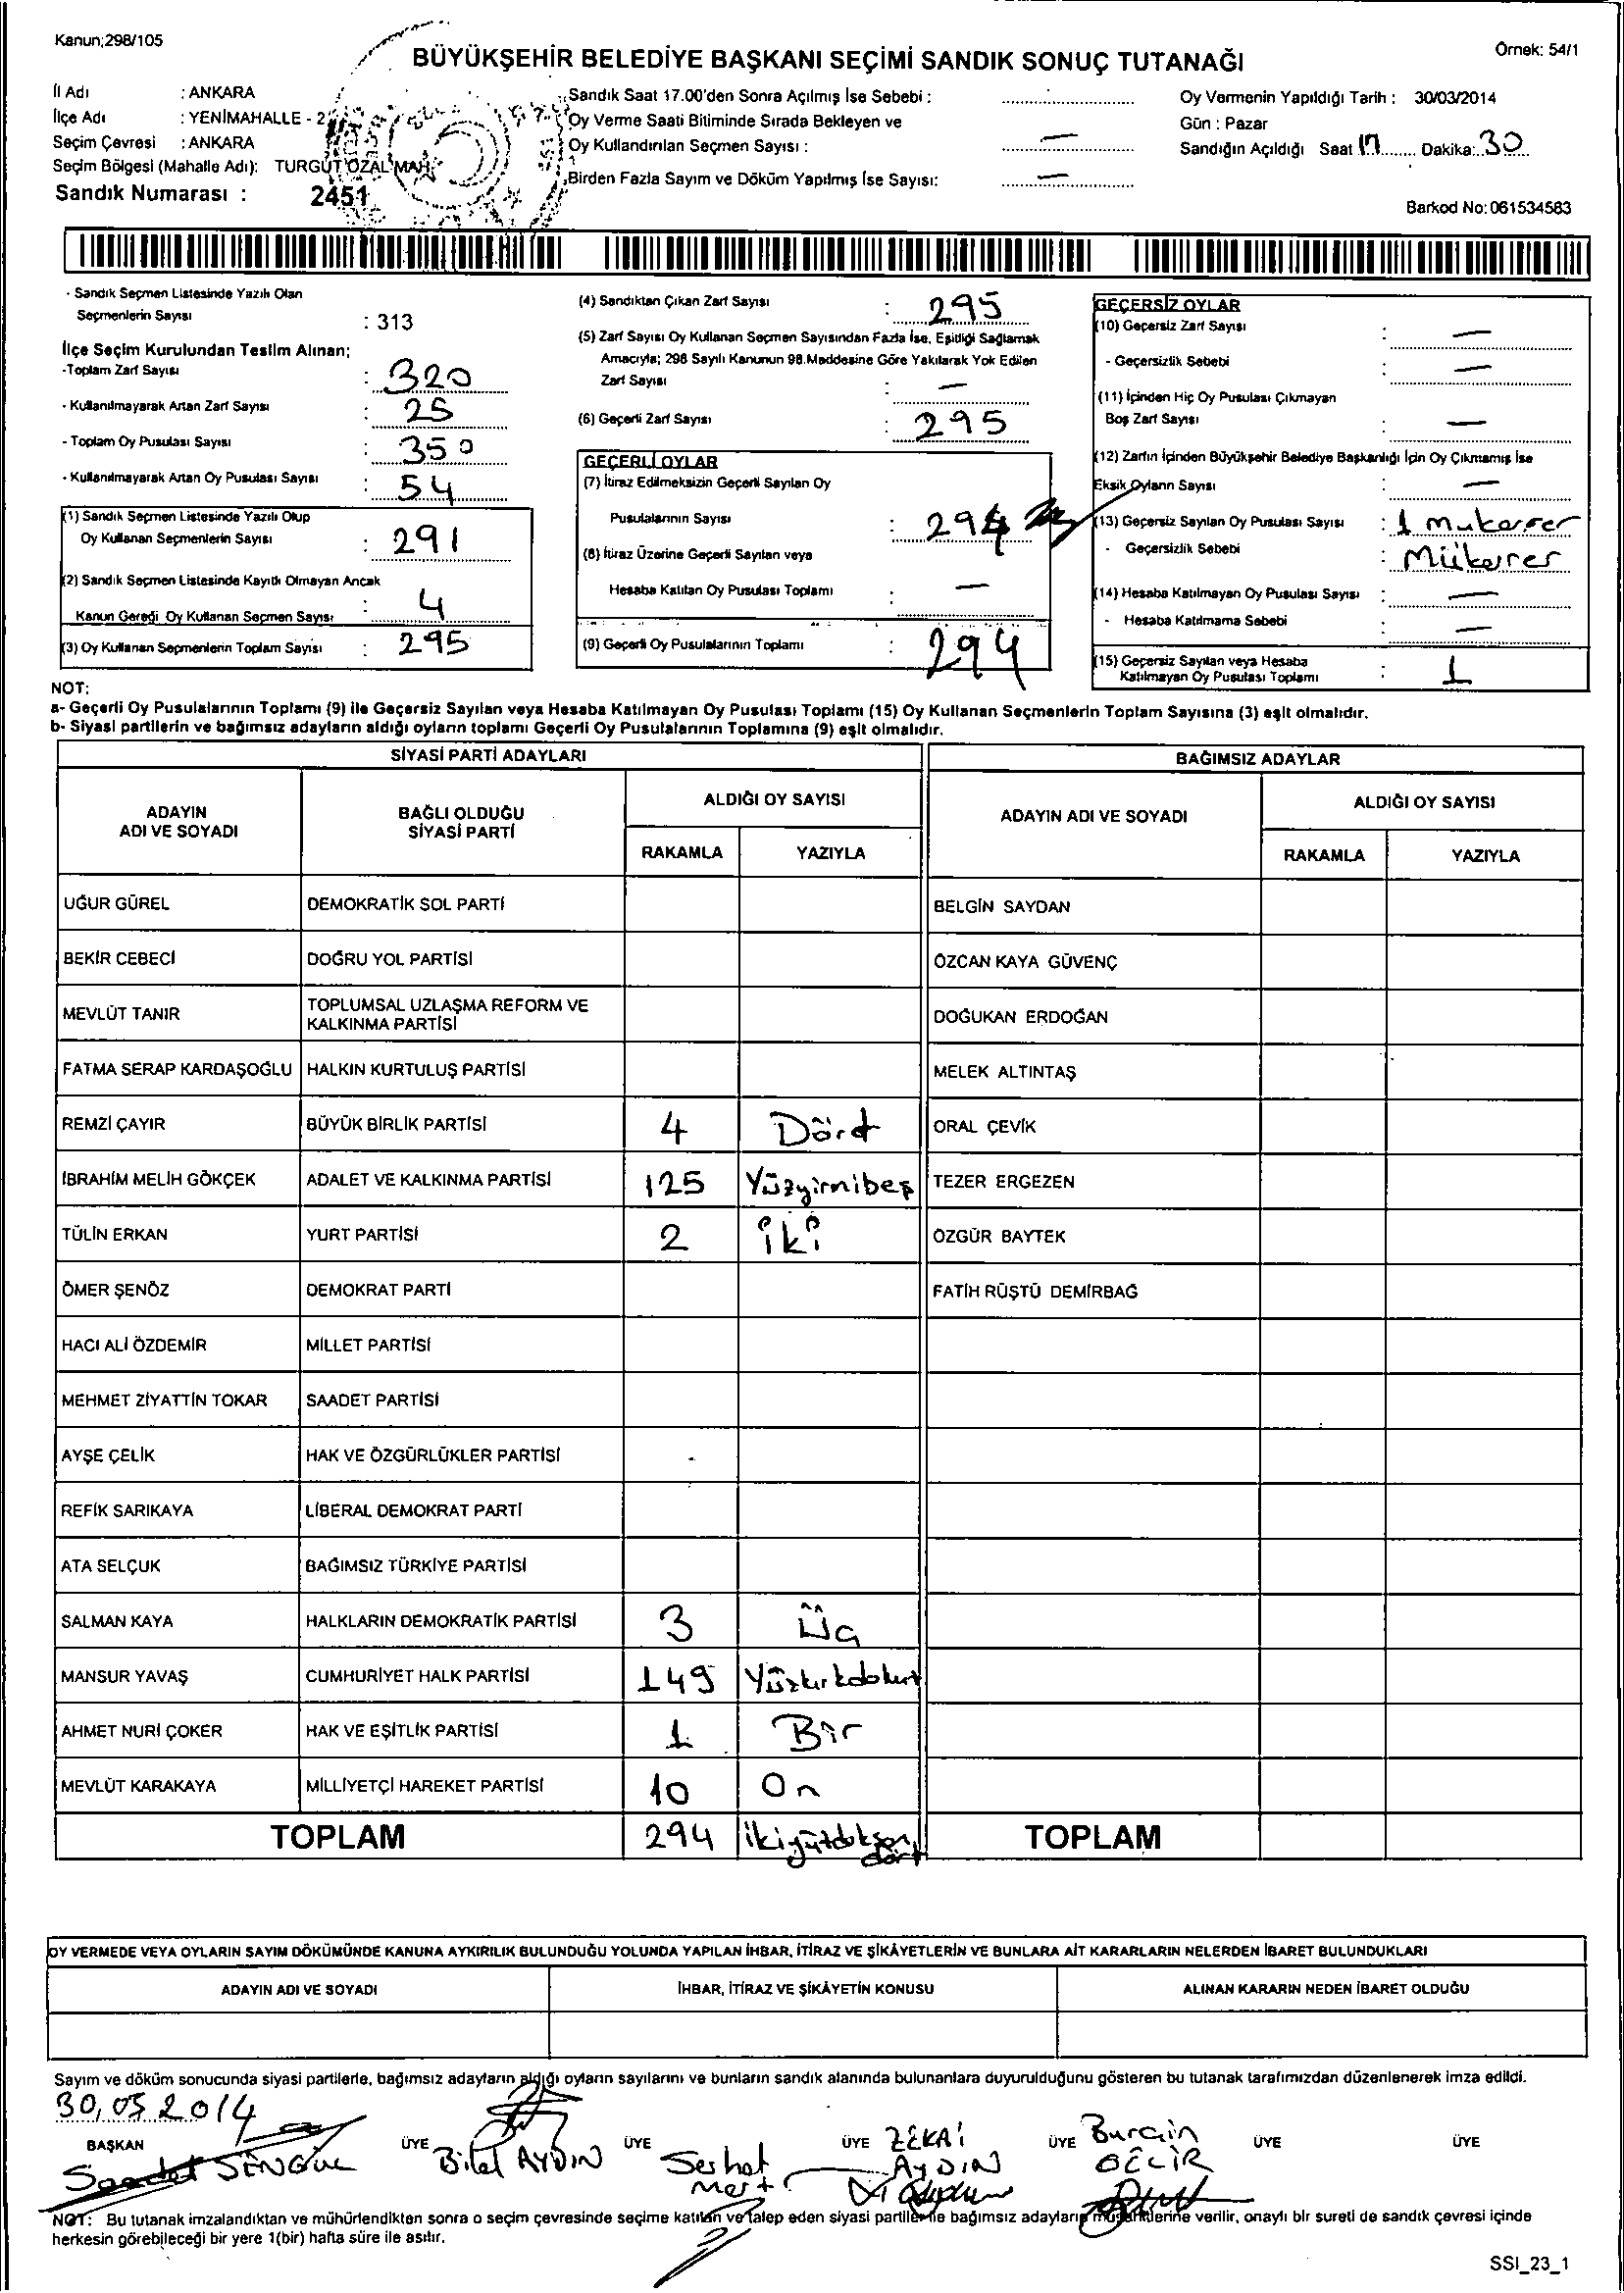 Kanun;298/105
BÜYÜKŞEHİR BELEDİYE BAŞKANI SEÇİMİ SANDIK SONUÇ TUTANAĞI
Örnek: 54/1
İl Adı : ANKARA
İlçe Adı : YENİMAHALLE - 2
Seçim Çevresi : ANKARA
Seçim Bölgesi (Mahalle Adı): TURGUT ÖZAL MAH.
Sandık Numarası : 2451
Sandık Saat 17.00'den Sonra Açılmış İse Sebebi :
Oy Verme Saati Bitiminde Sırada Bekleyen ve
Oy Kullandırılan Seçmen Sayısı : —
Birden Fazla Sayım ve Döküm Yapılmış İse Sayısı: —
Oy Vermenin Yapıldığı Tarih : 30/03/2014
Gün : Pazar
Sandığın Açıldığı Saat 17 Dakika: 30
Barkod No: 061534583
- Sandık Seçmen Listesinde Yazılı Olan
Seçmenlerin Sayısı : 313
İlçe Seçim Kurulundan Teslim Alınan;
-Toplam Zarf Sayısı : 320
- Kullanılmayarak Artan Zarf Sayısı : 25
- Toplam Oy Pusulası Sayısı : 350
- Kullanılmayarak Artan Oy Pusulası Sayısı : 54
(1) Sandık Seçmen Listesinde Yazılı Olup
Oy Kullanan Seçmenlerin Sayısı : 291
(2) Sandık Seçmen Listesinde Kayıtlı Olmayan Ancak
Kanun Gereği Oy Kullanan Seçmen Sayısı : 4
(3) Oy Kullanan Seçmenlerin Toplam Sayısı : 295
(4) Sandıktan Çıkan Zarf Sayısı : 295
(5) Zarf Sayısı Oy Kullanan Seçmen Sayısından Fazla İse, Eşitliği Sağlamak
Amacıyla; 298 Sayılı Kanunun 98.Maddesine Göre Yakılarak Yok Edilen
Zarf Sayısı : —
(6) Geçerli Zarf Sayısı : 295
GEÇERLİ OYLAR
(7) İtiraz Edilmeksizin Geçerli Sayılan Oy
Pusulalarının Sayısı : 294
(8) İtiraz Üzerine Geçerli Sayılan veya
Hesaba Katılan Oy Pusulası Toplamı : —
(9) Geçerli Oy Pusulalarının Toplamı : 294
GEÇERSİZ OYLAR
(10) Geçersiz Zarf Sayısı : —
- Geçersizlik Sebebi : —
(11) İçinden Hiç Oy Pusulası Çıkmayan
Boş Zarf Sayısı : —
(12) Zarfın İçinden Büyükşehir Belediye Başkanlığı İçin Oy Çıkmamış İse
Eksik Oyların Sayısı : —
(13) Geçersiz Sayılan Oy Pusulası Sayısı : 1 mukerrer
- Geçersizlik Sebebi : Mükerrer
(14) Hesaba Katılmayan Oy Pusulası Sayısı : —
- Hesaba Katılmama Sebebi : —
(15) Geçersiz Sayılan veya Hesaba
Katılmayan Oy Pusulası Toplamı : 1
NOT:
a- Geçerli Oy Pusulalarının Toplamı (9) ile Geçersiz Sayılan veya Hesaba Katılmayan Oy Pusulası Toplamı (15) Oy Kullanan Seçmenlerin Toplam Sayısına (3) eşit olmalıdır.
b- Siyasi partilerin ve bağımsız adayların aldığı oyların toplamı Geçerli Oy Pusulalarının Toplamına (9) eşit olmalıdır.
SİYASİ PARTİ ADAYLARI
ADAYIN ADI VE SOYADI
BAĞLI OLDUĞU SİYASİ PARTİ
ALDIĞI OY SAYISI
RAKAMLA YAZIYLA
UĞUR GÜREL DEMOKRATİK SOL PARTİ
BEKİR CEBECİ DOĞRU YOL PARTİSİ
MEVLÜT TANIR TOPLUMSAL UZLAŞMA REFORM VE
KALKINMA PARTİSİ
FATMA SERAP KARDAŞOĞLU HALKIN KURTULUŞ PARTİSİ
REMZİ ÇAYIR BÜYÜK BİRLİK PARTİSİ 4 Dört
İBRAHİM MELİH GÖKÇEK ADALET VE KALKINMA PARTİSİ 125 Yüzyirmibeş
TÜLİN ERKAN YURT PARTİSİ 2 iki
ÖMER ŞENÖZ DEMOKRAT PARTİ
HACI ALİ ÖZDEMİR MİLLET PARTİSİ
MEHMET ZİYATTİN TOKAR SAADET PARTİSİ
AYŞE ÇELİK HAK VE ÖZGÜRLÜKLER PARTİSİ
REFİK SARIKAYA LİBERAL DEMOKRAT PARTİ
ATA SELÇUK BAĞIMSIZ TÜRKİYE PARTİSİ
SALMAN KAYA HALKLARIN DEMOKRATİK PARTİSİ 3 Üç
MANSUR YAVAŞ CUMHURİYET HALK PARTİSİ 149 Yüzkırkdokuz
AHMET NURİ ÇOKER HAK VE EŞİTLİK PARTİSİ 1 Bir
MEVLÜT KARAKAYA MİLLİYETÇİ HAREKET PARTİSİ 10 On
TOPLAM 294 ikiyüzdoksan
dört
BAĞIMSIZ ADAYLAR
ADAYIN ADI VE SOYADI
ALDIĞI OY SAYISI
RAKAMLA YAZIYLA
BELGİN SAYDAN
ÖZCAN KAYA GÜVENÇ
DOĞUKAN ERDOĞAN
MELEK ALTINTAŞ
ORAL ÇEVİK
TEZER ERGEZEN
ÖZGÜR BAYTEK
FATİH RÜŞTÜ DEMİRBAĞ
TOPLAM
OY VERMEDE VEYA OYLARIN SAYIM DÖKÜMÜNDE KANUNA AYKIRILIK BULUNDUĞU YOLUNDA YAPILAN İHBAR, İTİRAZ VE ŞİKÂYETLERİN VE BUNLARA AİT KARARLARIN NELERDEN İBARET BULUNDUKLARI
ADAYIN ADI VE SOYADI
İHBAR, İTİRAZ VE ŞİKÂYETİN KONUSU
ALINAN KARARIN NEDEN İBARET OLDUĞU
Sayım ve döküm sonucunda siyasi partilerle, bağımsız adayların aldığı oyların sayılarını ve bunların sandık alanında bulunanlara duyurulduğunu gösteren bu tutanak tarafımızdan düzenlenerek imza edildi.
30,03 2014
BAŞKAN ÜYE ÜYE ÜYE ÜYE ÜYE ÜYE
Saadet ŞENGÜL
Bilal AYDIN
Serhat
Mert
ZEKAİ
AYDIN
Burçin
NOT: Bu tutanak imzalandıktan ve mühürlendikten sonra o seçim çevresinde seçime katılan ve talep eden siyasi partilerle bağımsız adayların müşahitlerine verilir, onaylı bir sureti de sandık çevresi içinde
herkesin görebileceği bir yere 1(bir) hafta süre ile asılır.
SSI_23_1